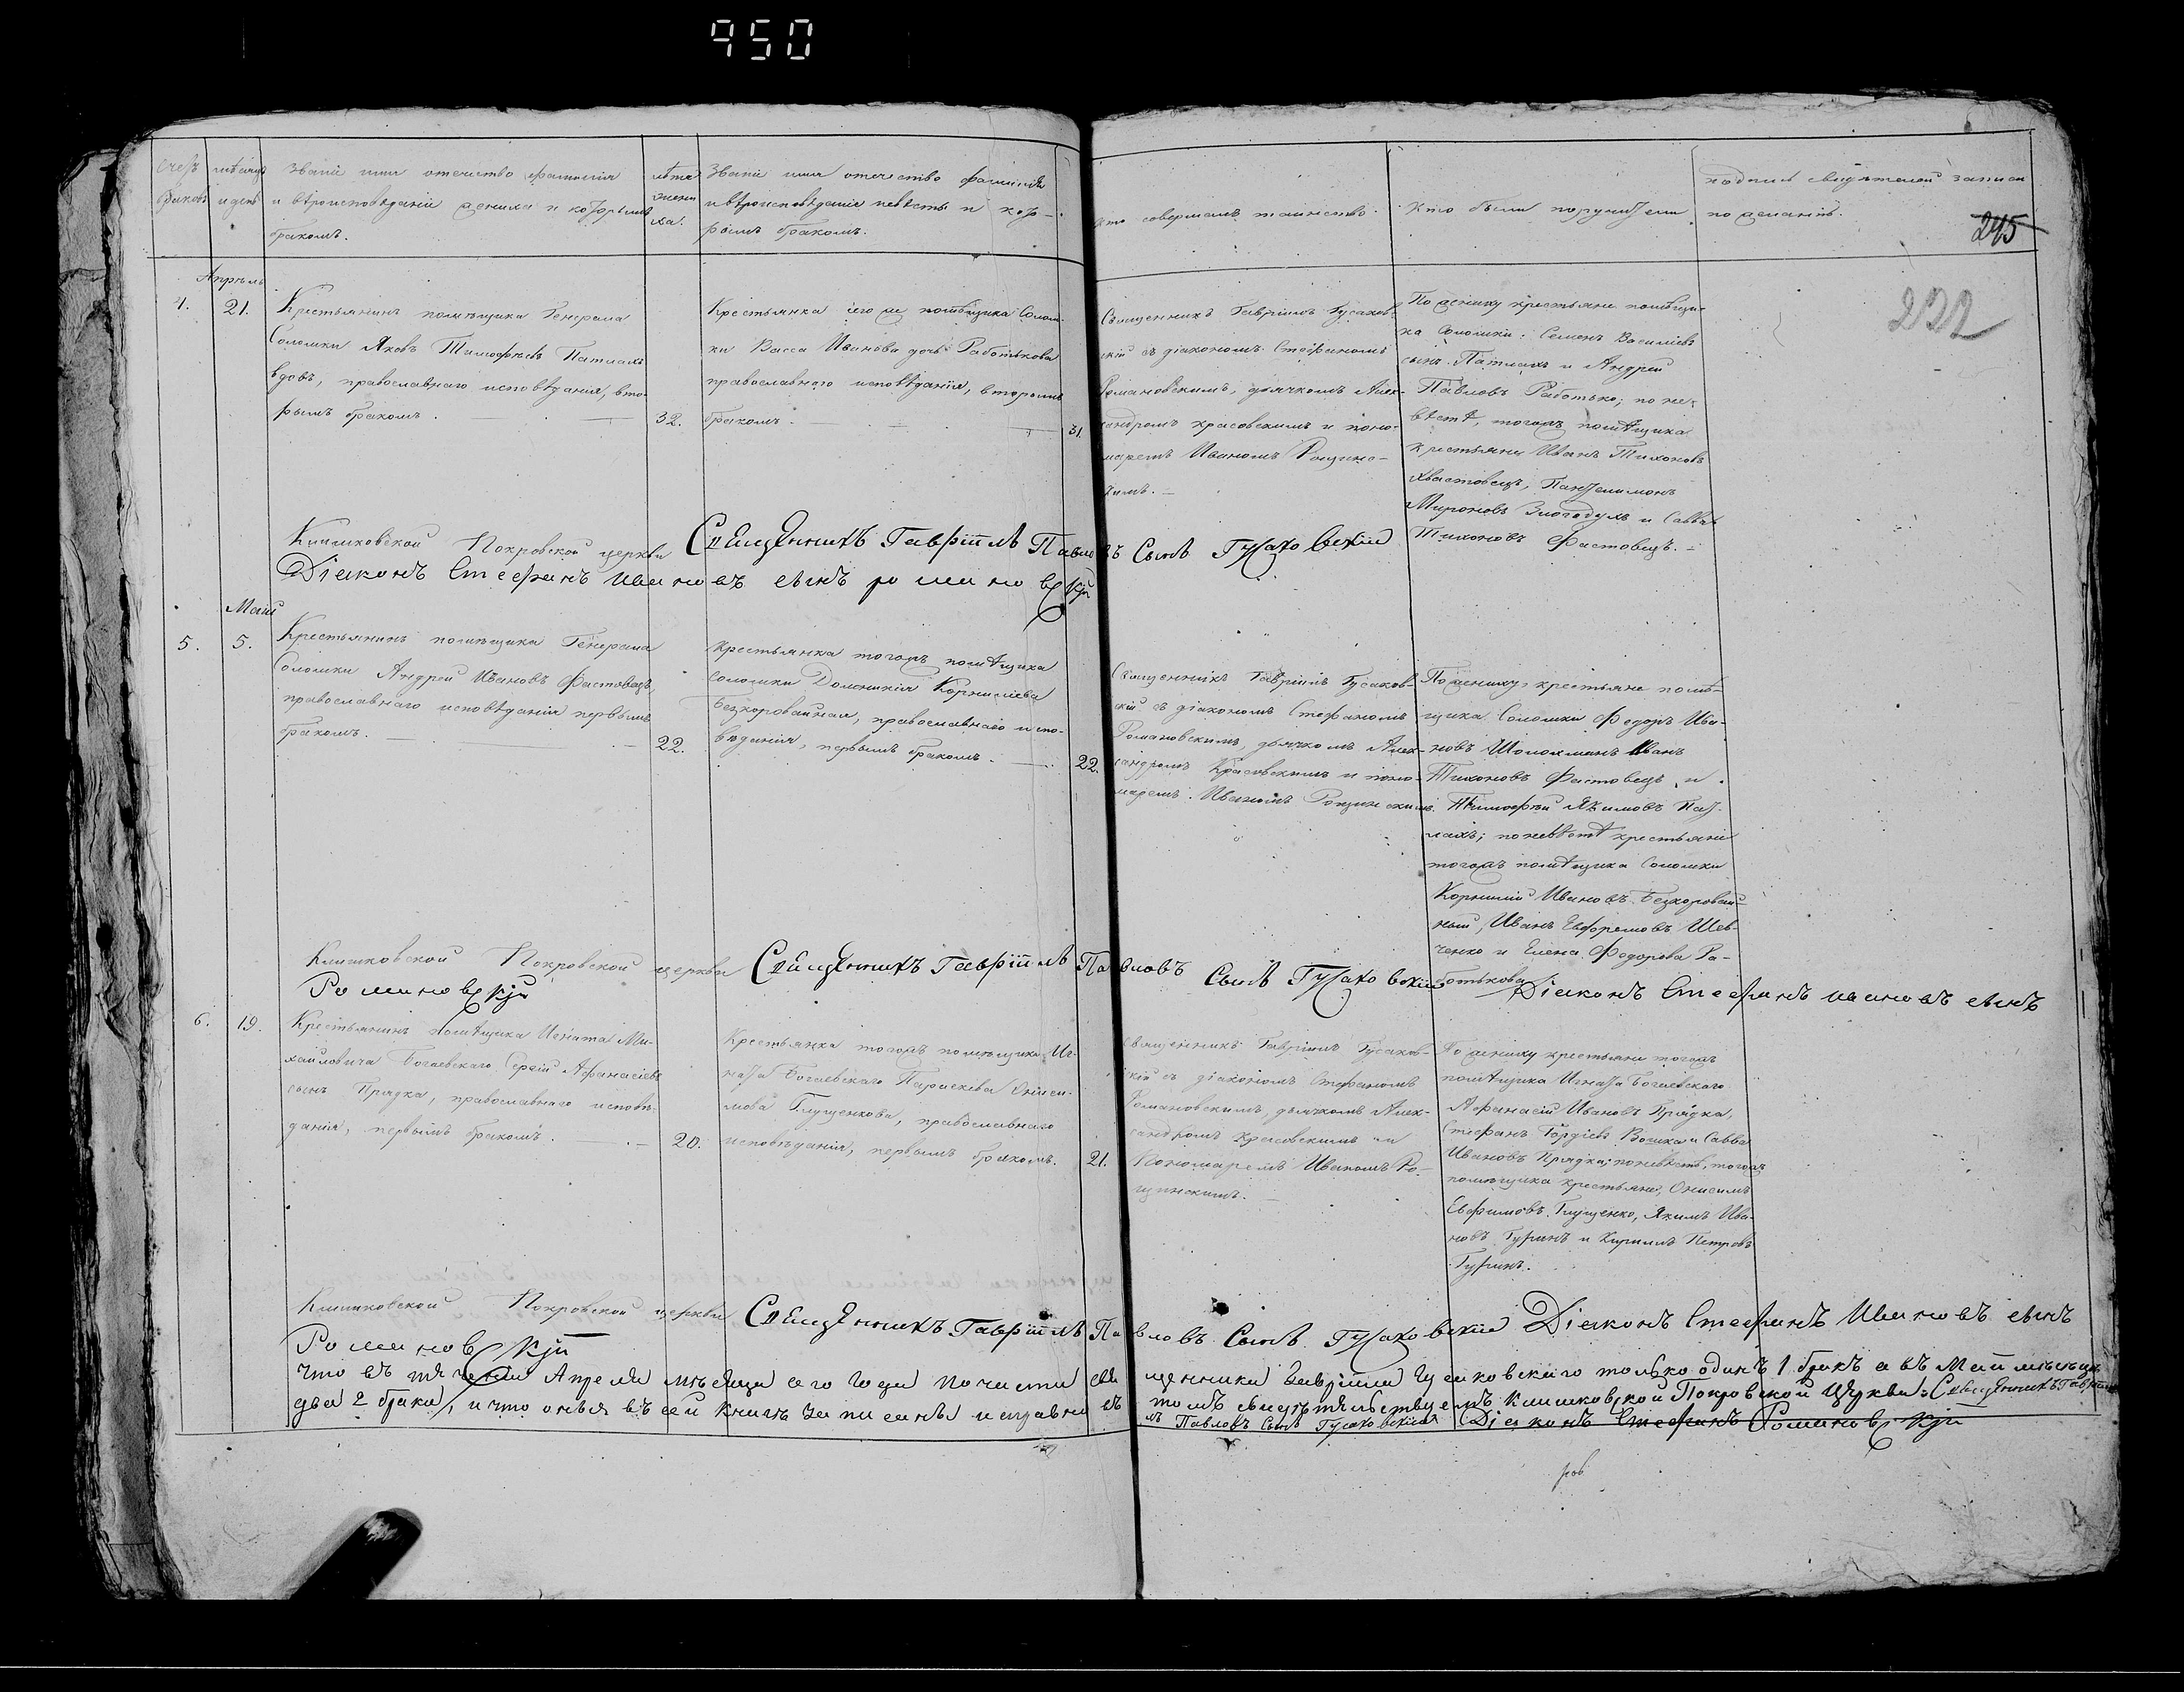 950
Счетъ
браковъ
мѣсяцъ
и день
Званіе имя отечество фамилія
и вѣроисповѣданіе жениха и которымъ
бракомъ.
лѣта
жени
ха.
Званіе имя отечество фамилія
и вѣроисповѣданіе невѣсты и кото-
рымъ бракомъ.
кто совершалъ таинство.
Кто были поручители
подпись свидѣтелей записи
по желанію.
245
232
Апрѣль
4.
21.
Крестьянинъ помѣщика Генерала
Соломки Яковъ Тимофѣевъ Патлахъ
вдовъ, православнаго исповѣданія, вто-
рымъ бракомъ.
32.
Крестьянка того же помѣщика Солом-
ки Васса Иванова дочь Работькова
православного исповѣданія, вторымъ
бракомъ.
31.
Священникъ Гавріилъ Гусаков-
скій съ діакономъ Стефаномъ
Романовскимъ, дьячкомъ Алек-
сандромъ Красовскимъ и поно-
маремъ Иваномъ Рощинс-
кимъ.
По жениху крестьяне помѣщи-
ка Соломки: Семенъ Василіевъ
сынъ Патлахъ и Андрей
Павловъ Работько; по не-
вѣстѣ, тогожъ помѣщика
крестьяне Иванъ Тихоновъ
Хвастовецъ, Пантелимонъ
Мироновъ Злогодухъ и Савва
Тихоновъ Фастовецъ.
Климковской Покровской церкви Священникъ Гавріилъ Павловъ Сынъ Гусаковскій
Діаконъ Стефанъ Ивановъ сынъ романовскій
Май
5.
5.
Крестьянинъ помѣщика Генерала
Соломки Андрей Ивановъ Фастовецъ,
православнаго исповѣданія первымъ
бракомъ.
22.
Крестьянка тогожъ помѣщика
Соломки Домникія Корниліева
Безкоровайная, православнаго испо-
вѣданія, первымъ бракомъ.
22.
Священникъ Гавріилъ Гусаков-
скій съ діакономъ Стефаномъ
Романовскимъ, дьячкомъ Алек-
сандромъ Красовскимъ и поно-
маремъ Иваномъ Рощинскимъ.
По жениху, крестьяне помѣ-
щика Соломки Федоръ Ива-
новъ Иванъ
Тихоновъ Фастовецъ и
Тимофѣй Якимовъ Пат-
лахъ; по невѣстѣ крестьяне
тогожъ помѣщика Соломки
Корнилій Ивановъ Безкоровай-
ный, Иванъ Ефремовъ Шев-
ченко и Елена Федорова Ра-
ботькова
Климковской Покровской церкви Священникъ Гавріилъ Павловъ Сынъ Гусаковскій Діаконъ Стефанъ ивановъ сынъ
Романовскій
6.
19.
Крестьянинъ помѣщика Игната Ми-
хайловича Богаевскаго Сергій Афанасіевъ
сынъ Прядка, православнаго исповѣ-
данія, первымъ бракомъ.
20.
Крестьянка тогожъ помѣщика Иг-
ната Богаевскаго Параскева Ониси-
мова Глущенкова, православнаго
исповѣданія, первымъ бракомъ.
21.
Священникъ Гавріилъ Гусаков-
скій съ діакономъ Стефаномъ
Романовскимъ, дьячкомъ Алек-
сандромъ Красовскимъ и
Пономаремъ Иваномъ Ро-
щинскимъ.
По жениху крестьяне тогожъ
помѣщика Игната Богаевскаго
Афанасій Ивановъ Прядка,
Стефанъ Гордіевъ и Савва
Ивановъ Прядка; по невѣстѣ, тогожъ
помѣщика крестьяне, Онисимъ
Евфимовъ Глущенко, Якимъ Ива-
новъ Гуринъ и Кирилъ Петровъ
Гуринъ.
Климковской Покровской церкви Священникъ Гавріилъ Павловъ Сынъ Гусаковскій Діаконъ Стефанъ Ивановъ сынъ
Романовскій
что въ теченіи Апреля мѣсяца сего года по части священника Гавріила Гусаковскаго только одинъ 1. бракъ а въ Маѣ мѣсяцѣ
два 2 брака, и что оныя въ сей книгѣ записаны исправно въ томъ свидѣтельствуемъ. Климковской Покровской Церкви: Священникъ Гавріи
лъ Павловъ Сынъ Гусаковскій Діаконъ Стефанъ Романовскій
ров